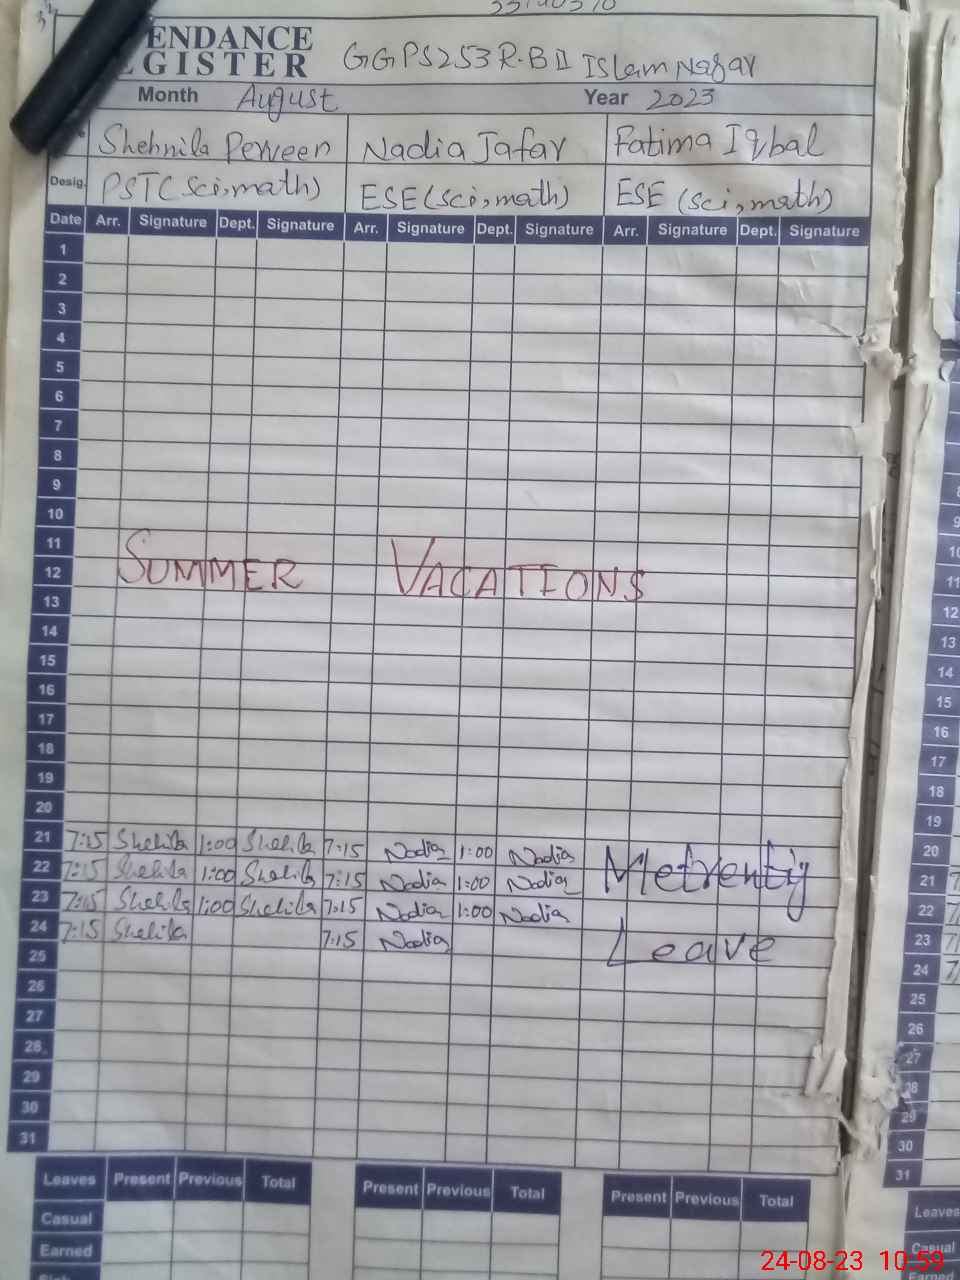 33140370
ENDANCE
EGISTER GGPS253R.BII Islam Nagar
Month August Year 2023
Shehnila Perveen Nadia Jafar Fatima Iqbal
Desig. PST(sci,math) ESE(sci,math) ESE (sci,math)
Date Arr. Signature Dept. Signature Arr. Signature Dept. Signature Arr. Signature Dept. Signature
1
2
3
4
5
6
7
8
9
10
11
12 SUMMER VACATIONS
13
14
15
16
17
18
19
20
21 7:15 Shehila 1:00 Shehila 7:15 Nadia 1:00 Nadia
22 7:15 Shehila 1:00 Shehila 7:15 Nadia 1:00 Nadia Metrenty
23 7:15 Shehila 1:00 Shehila 7:15 Nadia 1:00 Nadia
24 7:15 Shehila 7:15 Nadia Leave
25
26
27
28
29
30
31
Leaves Present Previous Total Present Previous Total Present Previous Total
Casual
Earned
9
10
11
12
13
14
15
16
17
18
19
20
21
22
23
24
25
26
27
28
29
30
31
Leaves
Casual
Earned
24-08-23 10:59